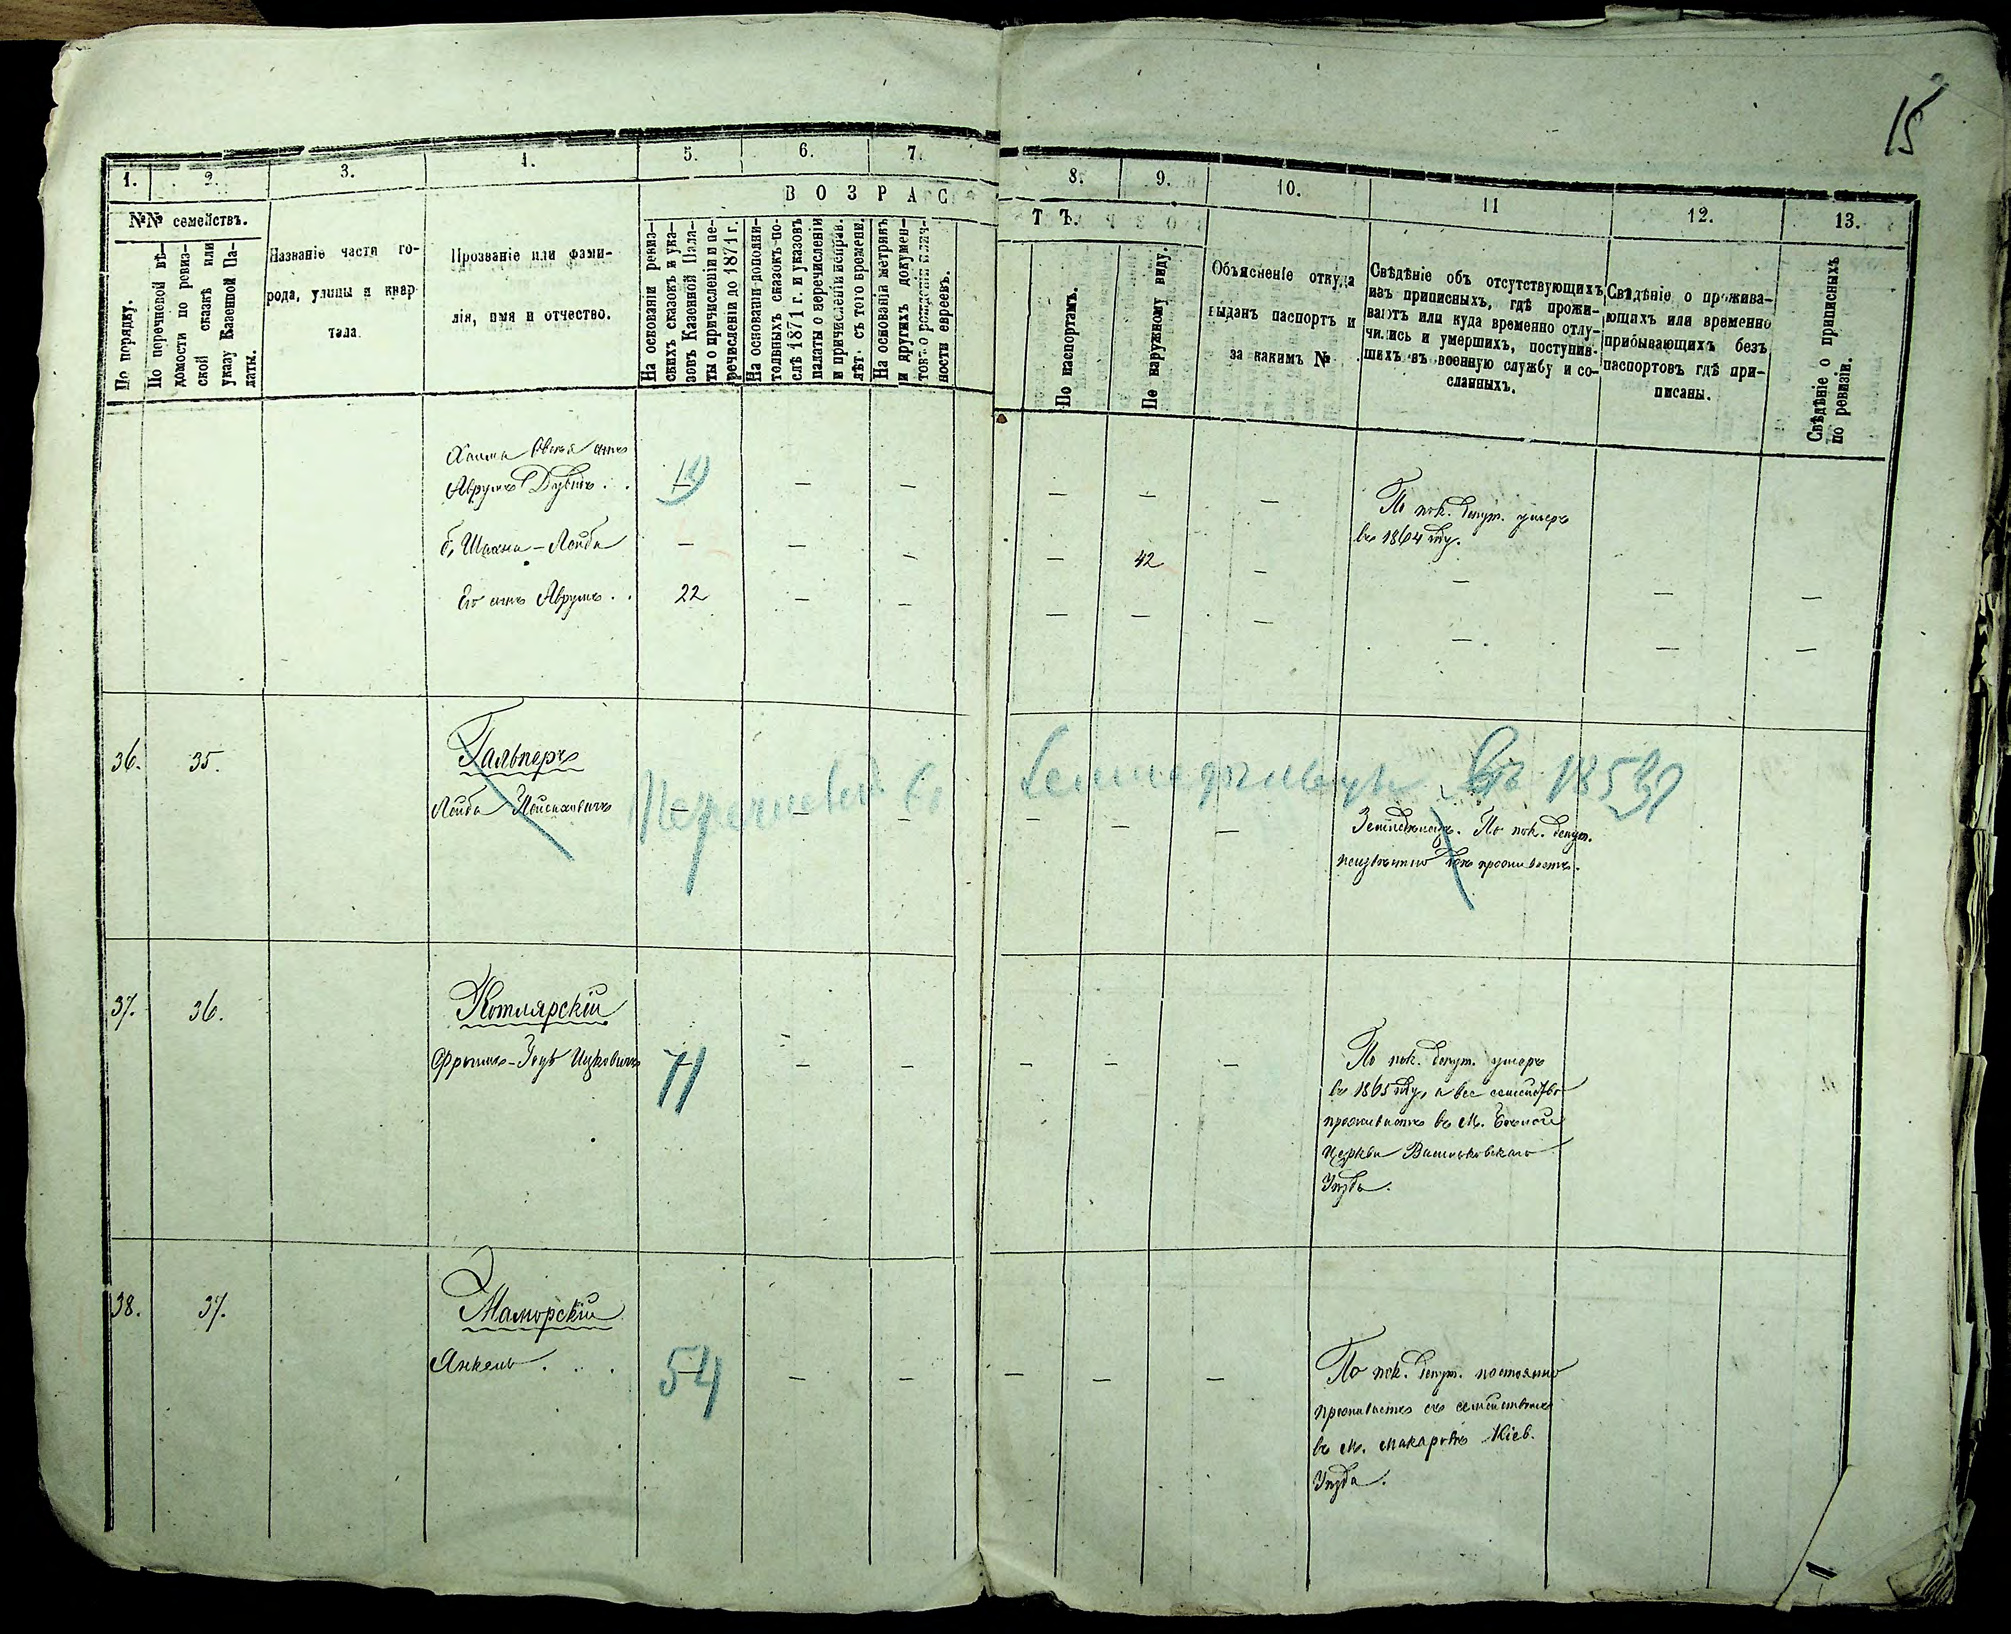 15
1. 2. 3. 4. 5. 6. 7. 8. 9. 10. 11 12. 13.
№№ семействъ.
ВОЗРАСТЪ.
По порядку.
По перечневой вѣ-
домости по ревиз-
ской сказкѣ или
указу Казенной Па-
латы.
Названіе части го-
рода, улицы и квар
тала.
Прозваніе или фами-
лія, имя и отчество.
На основаніи ревиз-
скихъ сказокъ и ука-
зовъ Казенной Пала-
ты о причисленіи и пе-
речисленіи до 1871 г.
На основаніи дополни-
тельныхъ сказокъ по-
слѣ 1871 г. и указовъ
палаты о перечисленіи
и причисленіи исправ.
лѣт. съ того времени.
На основаніи метрикъ
и другихъ докумен-
товъ о рожденіи
ности евреевъ.
По паспортамъ.
По наружному виду.
Объясненіе откуда
выданъ паспортъ и
за какимъ №
Свѣдѣніе объ отсутствующихъ
изъ приписныхъ, гдѣ прожи-
ваютъ или куда временно отлу-
чились и умершихъ, поступив-
шихъ въ военную службу и со-
сланныхъ.
Свѣдѣніе о прожива-
ющихъ или временно
прибывающихъ безъ
паспортовъ гдѣ при-
писаны.
Свѣдѣніе о приписныхъ
по ревизіи.
Хаима сынъ
Аврумъ — — — — —
По пок. депут. умеръ
въ 1864 году.
Шахна-Лейба — — — — 42 — — — —
Его сынъ Аврумъ . . 22 — — — — — — — —
36. 35. Гальперъ
въ 1853
Лейба — — — — —
Земледѣлецъ. По пок. депут.
неизвѣстно гдѣ проживаетъ.
37. 36. Котлярскій
Фроимъ- Ицковичъ 71 — — — — —
По пок. депут. умеръ
въ 1865 году, а все семейство
проживаетъ въ м. Бѣлой
Церкви Васильковскаго
Уѣзда.
38. 37. Маморскій
Янкель . . . 54 — — — — —
По пок. депут. постоянно
проживаетъ съ семействомъ
въ м. Макаровѣ Кіев.
Уѣзда.